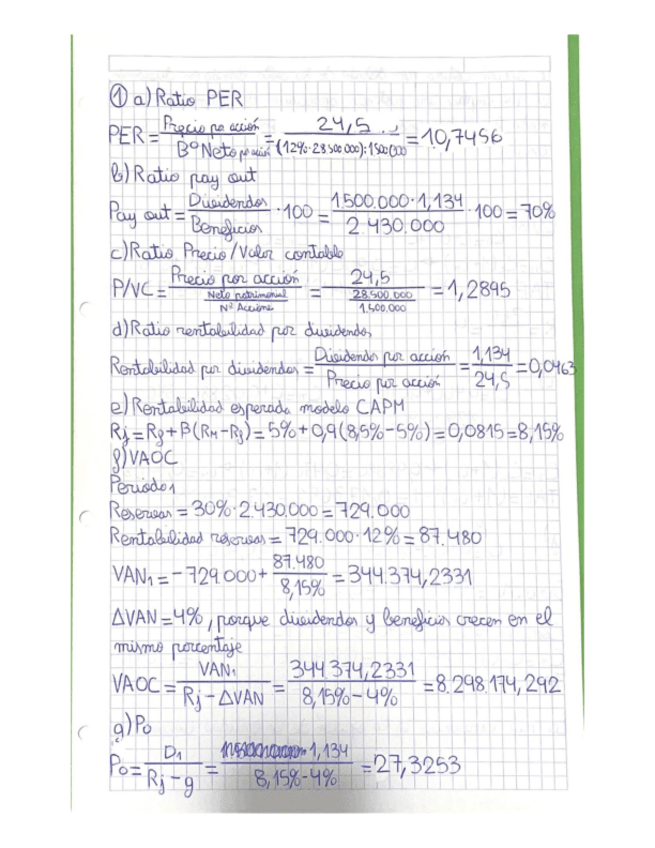 ① a) Ratio PER
PER = Precio por acción / Bº Neto por acción = 24,5 / (12%·28500000):1500000 = 10,7456
b) Ratio pay out
Pay out = Dividendos / Beneficios · 100 = 1.500.000·1,134 / 2.430.000 · 100 = 70%
c) Ratio Precio/Valor contable
P/VC = Precio por acción / Neto patrimonial / Nº Acciones = 24,5 / 28.500.000 / 1.500.000 = 1,2895
d) Ratio rentabilidad por dividendos
Rentabilidad por dividendos = Dividendos por acción / Precio por acción = 1,134 / 24,5 = 0,0463
e) Rentabilidad esperada modelo CAPM
Rj = Rf + β(RM - Rf) = 5% + 0,9(8,5% - 5%) = 0,0815 = 8,15%
f) VAOC
Periodo 1
Reservas = 30%·2.430.000 = 729.000
Rentabilidad reservas = 729.000·12% = 87.480
VAN1 = -729.000 + 87.480 / 8,15% = 344.374,2331
ΔVAN = 4%, porque dividendos y beneficios crecen en el
mismo porcentaje
VAOC = VAN1 / Rj - ΔVAN = 344.374,2331 / 8,15% - 4% = 8.298.174,292
g) P0
P0 = D1 / Rj - g = 1,134 / 8,15% - 4% = 27,3253